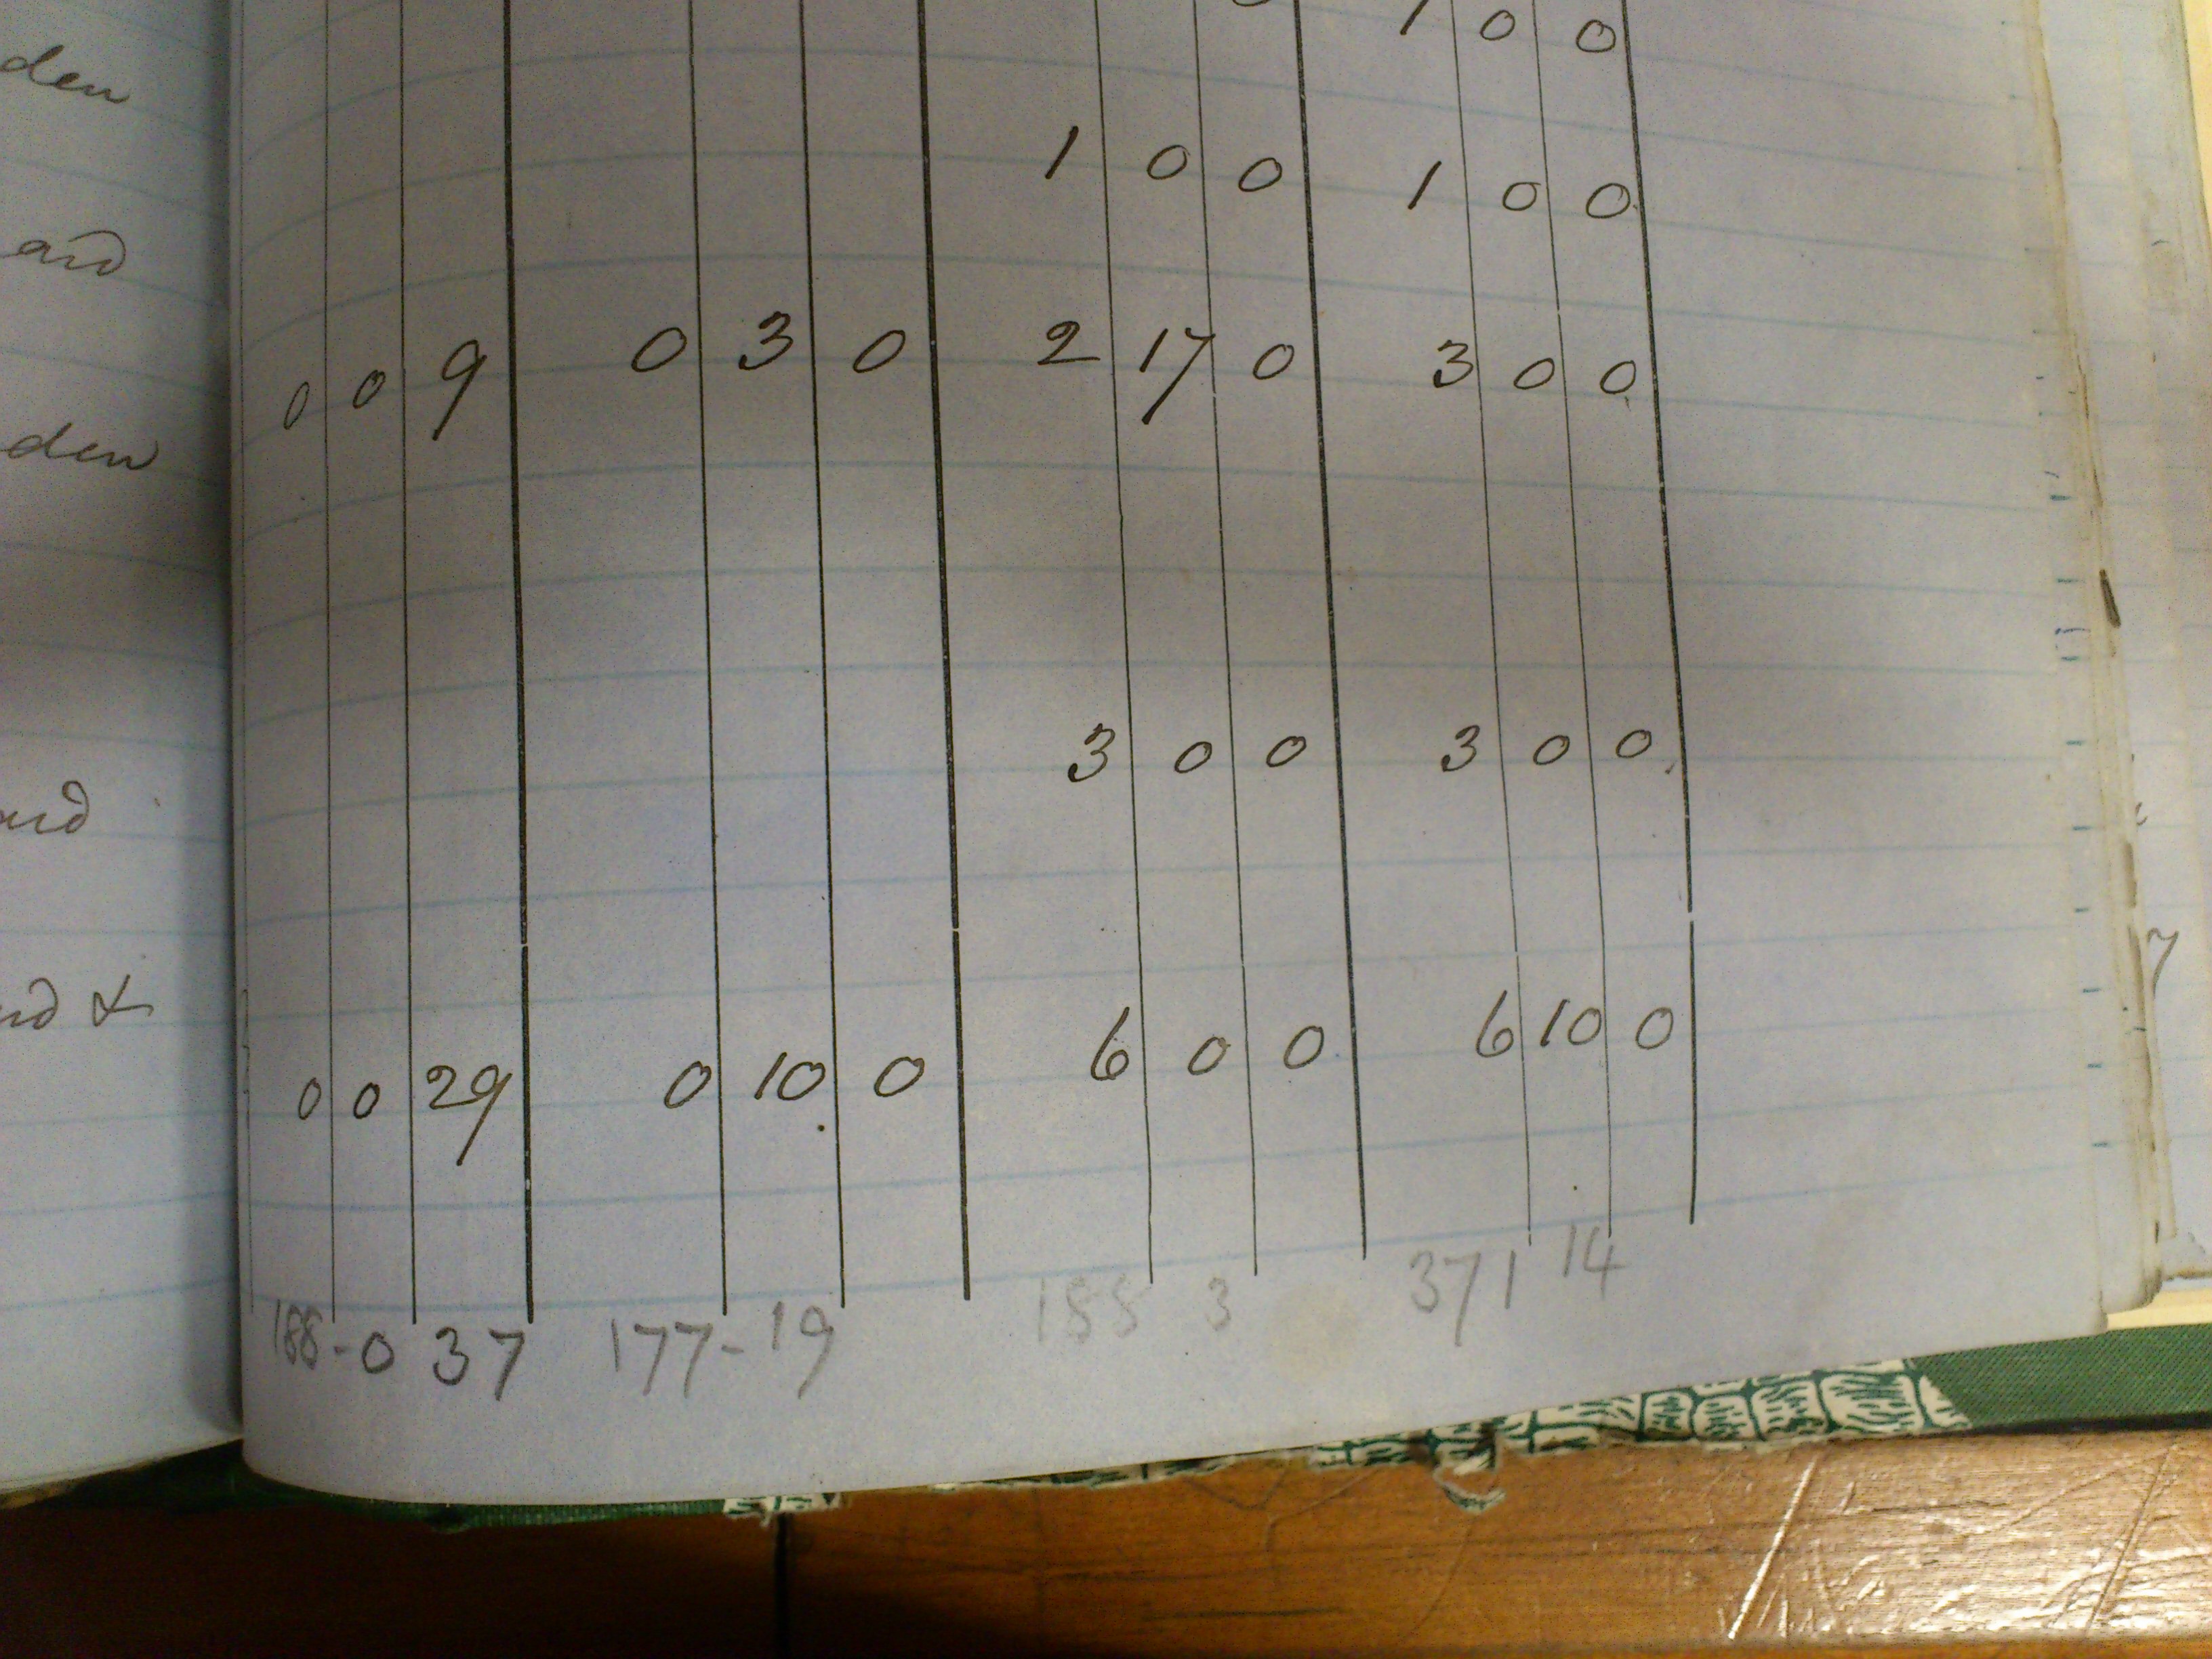 den
1 0 0
1 0 0 1 0 0
0 0 9 0 3 0 2 17 0 3 0 0
den
3 0 0 3 0 0
& 
0 0 29 0 10 0 6 0 0 6 10 0
188-0 37 177-19 3 371 14